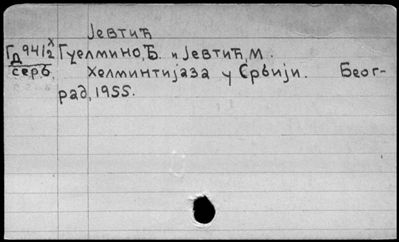 Јевтић
Гд 941/2 х Гуелмино, Ђ. и Јевтић, М.
серб. Хелминтијаза у Србији. Беог-
рад, 1955.